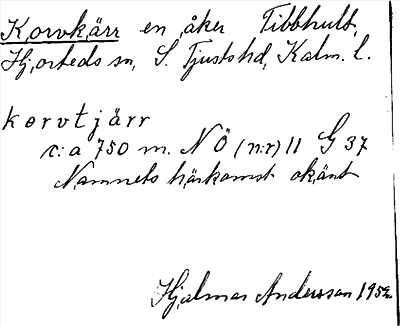 Korvkärr en åker Tibbhult,
Hjorteds sn, S. Tjusts hd, Kalm. l.
korvtjärr
c:a 750 m. NÖ (n:r) 11 G 37
Namnets härkomst okänt
Hjalmar Andersson 1952.